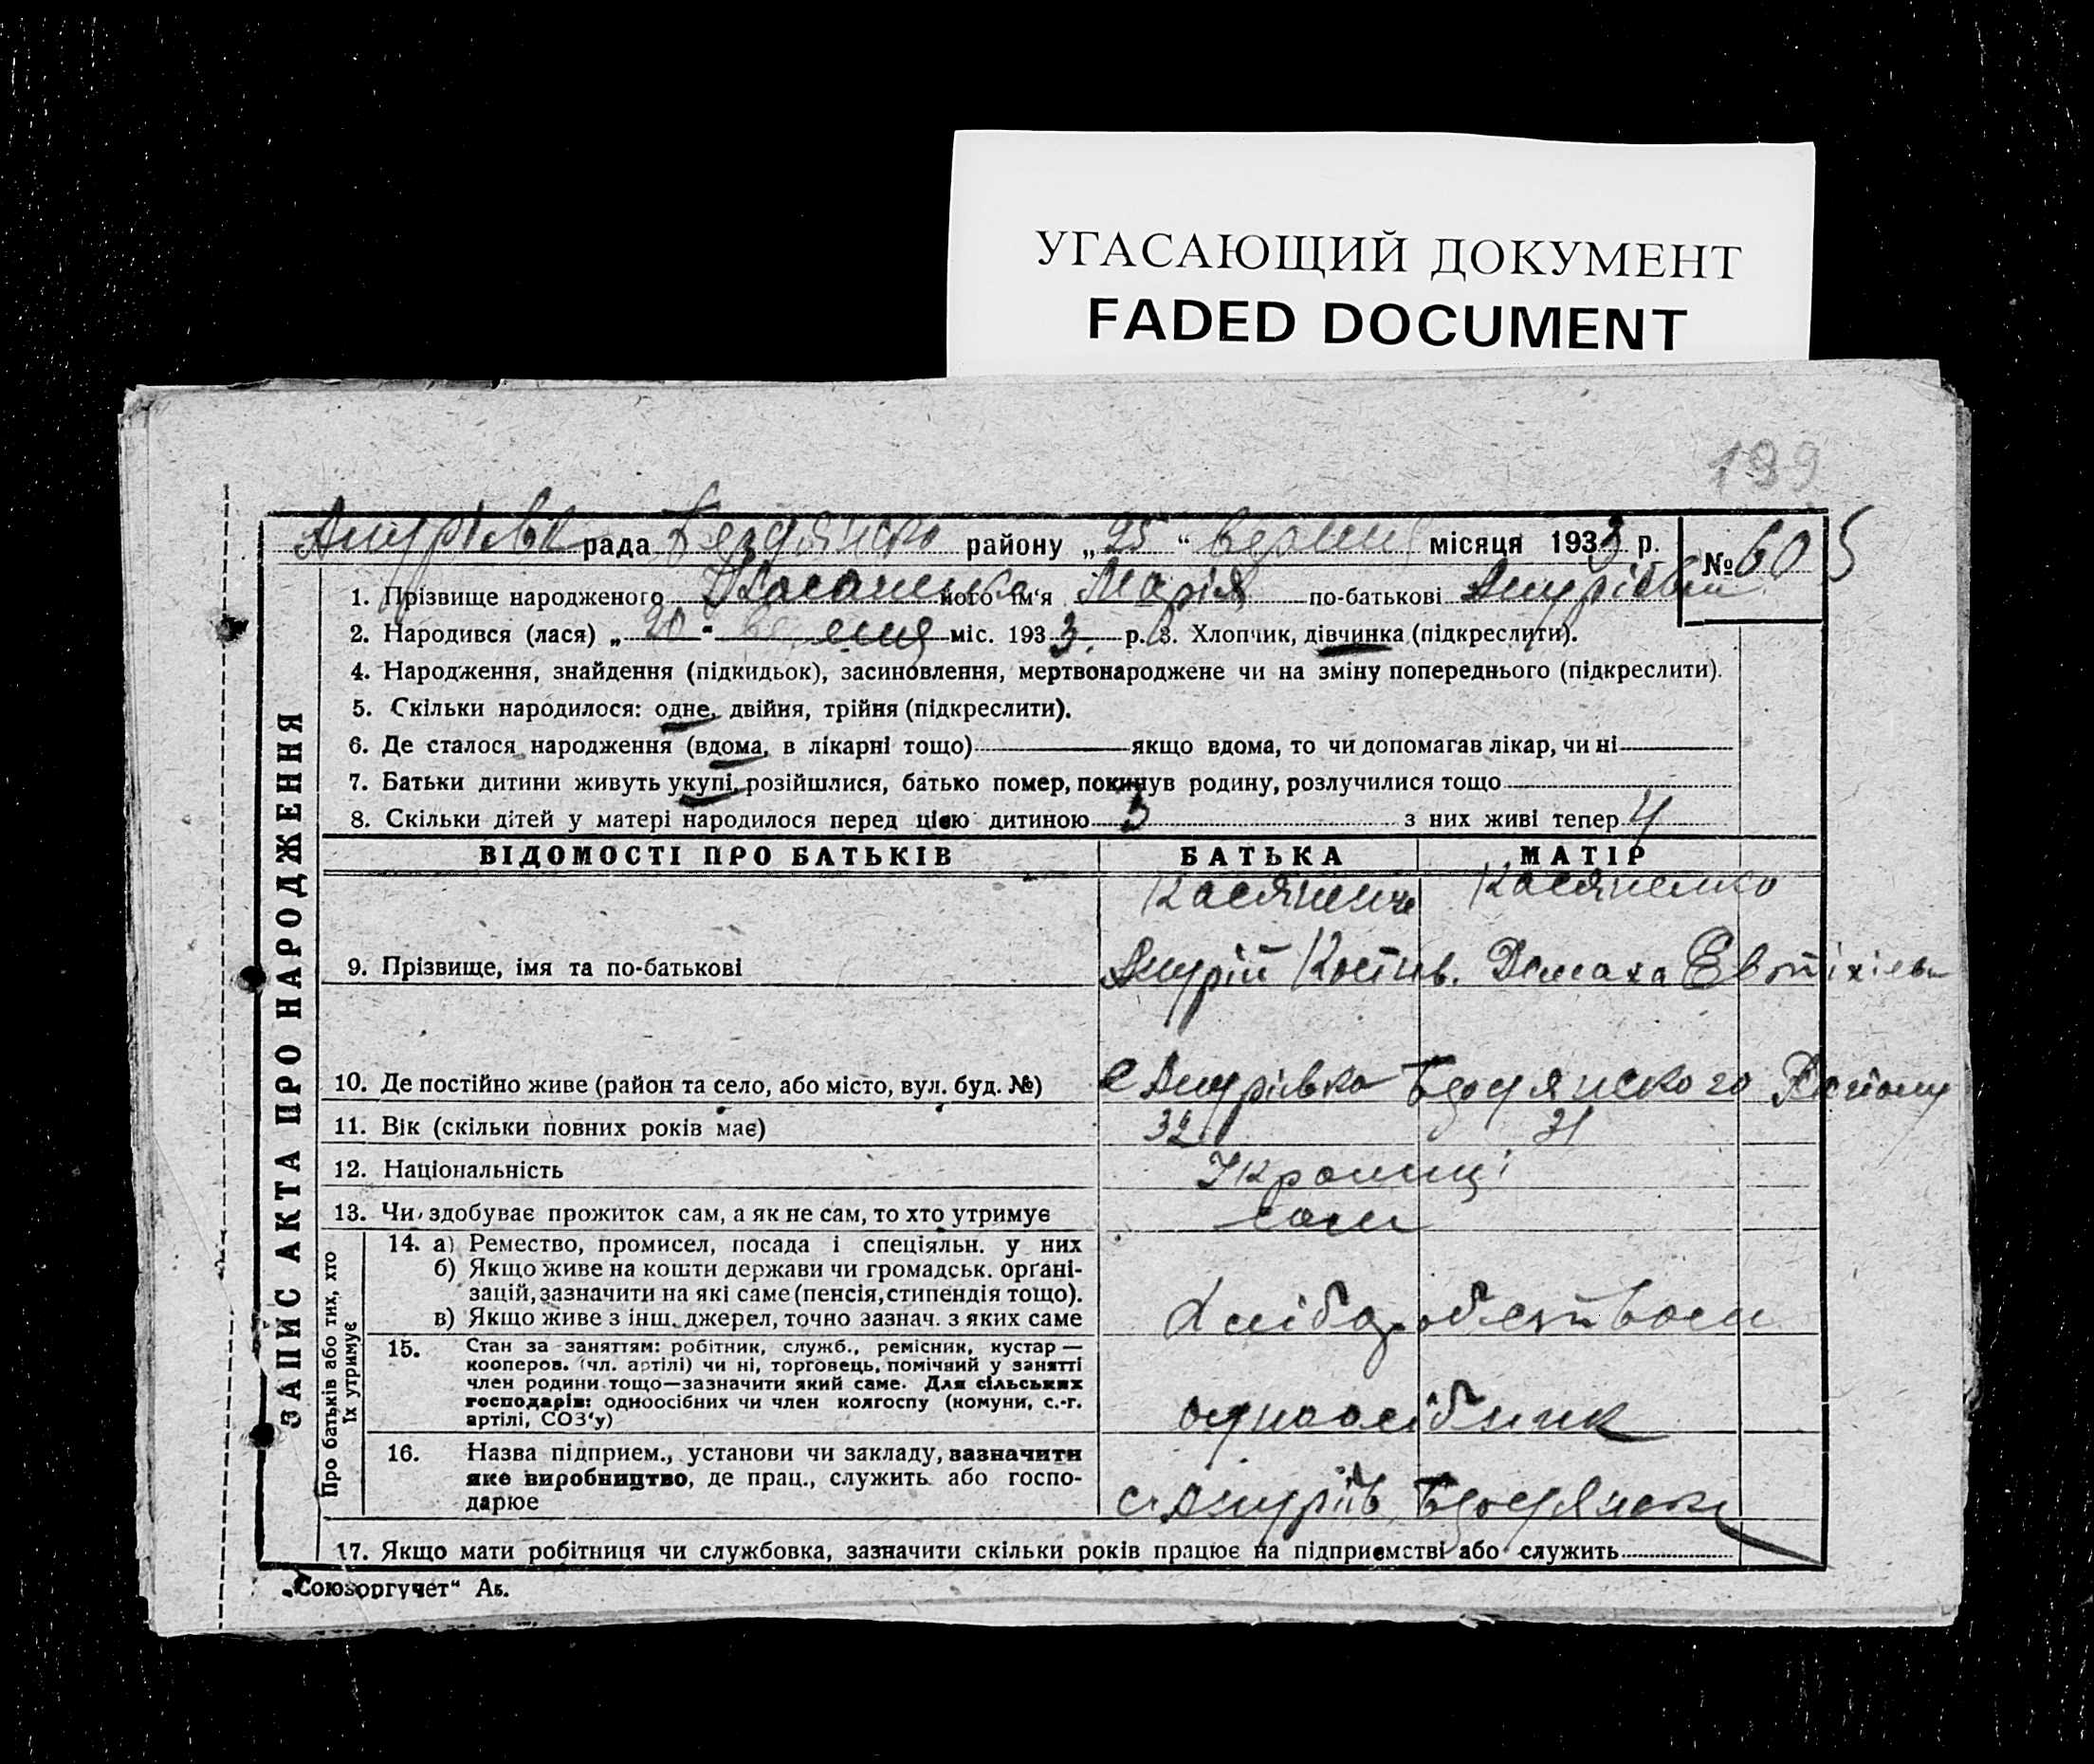 УГАСАЮЩИЙ ДОКУМЕНТ
FADED DOCUMENT
199
рада району „25“ місяця 1933 р.
№ 60 5
1. Прізвище народженого його ім'я Марія по-батькові
2. Народився (лася) „20 " міс. 1933. р. 3. Хлопчик, дівчинка (підкреслити).
4. Народження, знайдення (підкидьок), засиновлення, мертвонароджене чи на зміну попереднього (підкреслити).
5. Скільки народилося: одне, двійня, трійня (підкреслити).
6. Де сталося народження (вдома, в лікарні тощо) якщо вдома, то чи допомагав лікар, чи ні
7. Батьки дитини живуть укупі, розійшлися, батько помер, покинув родину, розлучилися тощо
8. Скільки дітей у матері народилося перед цією дитиною 3 з них живі тепер 4
ВІДОМОСТІ ПРО БАТЬКІВ БАТЬКА МАТІР
Касяненко Касяненко
9. Прізвище, імя та по-батькові Костив. Домаха Евтіхіевн
10. Де постійно живе (район та село, або місто, вул. буд. №) с Району
11. Вік (скільки повних років має) 32 31
12. Національність Українці
13. Чи здобуває прожиток сам, а як не сам, то хто утримує сам
14. а) Ремество, промисел, посада і спеціяльн. у них
б) Якщо живе на кошти держави чи громадськ. органі-
зацій, зазначити на які саме (пенсія, стипендія тощо).
в) Якщо живе з інш. джерел, точно зазнач. з яких саме Хліборобством
15. Стан за заняттям: робітник, служб., ремісник, кустар —
кооперов. (чл. артілі) чи ні, торговець, помічний у занятті
член родини тощо—зазначити який саме. Для сільських
господарів: одноосібних чи член колгоспу (комуни, с.-г.
артілі, СОЗ'у) одноосібник
16. Назва підприєм., установи чи закладу, зазначити
яке виробництво, де прац., служить або госпо-
дарює с.
17. Якщо мати робітниця чи службовка, зазначити скільки років працює на підприємстві або служить
ЗАПИС АКТА ПРО НАРОДЖЕННЯ
Про батьків або тих, хто
їх утримує
„Союзоргучет“ Аб.